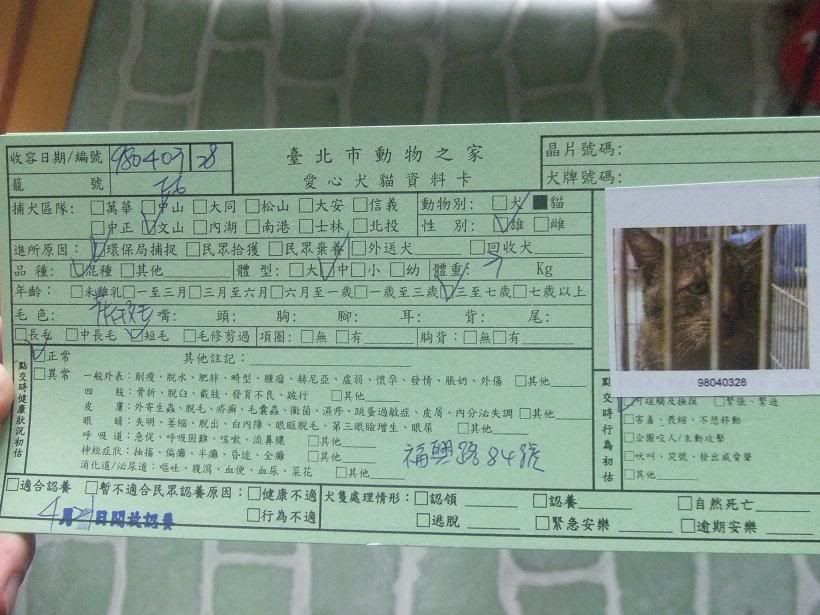 收容日期/編號 980403 28
籠 號
臺北市動物之家
愛心犬貓資料卡
晶片號碼:
犬牌號碼:
捕犬區隊: □萬華 □中山 □大同 □松山 □大安 □信義
□中正 □文山 □內湖 □南港 □士林 □北投
動物別: □犬 ■貓
性 別: □雄 □雌
進所原因: □環保局捕捉 □民眾拾獲 □民眾棄養 □外送犬 □回收犬
品 種: □混種 □其他 體 型: □大 □中 □小 □幼 體重: 7 Kg
年齡: □未離乳 □一至三月 □三月至六月 □六月至一歲 □一歲至三歲 □三至七歲 □七歲以上
毛 色: 嘴: 頭: 胸: 腳: 耳: 背: 尾:
□長毛 □中長毛 □短毛 □毛修剪過 項圈: □無 □有 胸背: □無 □有
點交時健康狀況初估
□正常 其他註記:
□異常 一般外表:削瘦、脫水、肥胖、畸型、腫瘤、赫尼亞、虛弱、懷孕、發情、脹奶、外傷 □其他
四 肢:骨折、脫臼、截肢、發育不良、跛行 □其他
皮 膚:外寄生蟲、脫毛、疥癬、毛囊蟲、黴菌、濕疹、跳蚤過敏症、皮屑、內分泌失調 □其他
眼 睛:失明、萎縮、脫出、白內障、眼眶脫毛、第三眼瞼增生、眼屎 □其他
呼 吸 道:急促、呼吸困難、咳嗽、流鼻膿 □其他
神經症狀:抽搐、偏癱、半癱、昏迷、全癱 □其他
消化道/泌尿道:嘔吐、腹瀉、血便、血尿、菜花 □其他
福興路84號
98040328
點交時行為初估
□可碰觸及撫摸 □緊張、緊迫
□害羞、畏縮、不想移動
□企圖咬人/主動攻擊
□吠叫、哭號、發出威脅聲
□其他
□適合認養 □暫不適合民眾認養原因: □健康不適
□行為不適
4月21日開放認養
犬隻處理情形: □認領 □認養 □自然死亡
□逃脫 □緊急安樂 □逾期安樂